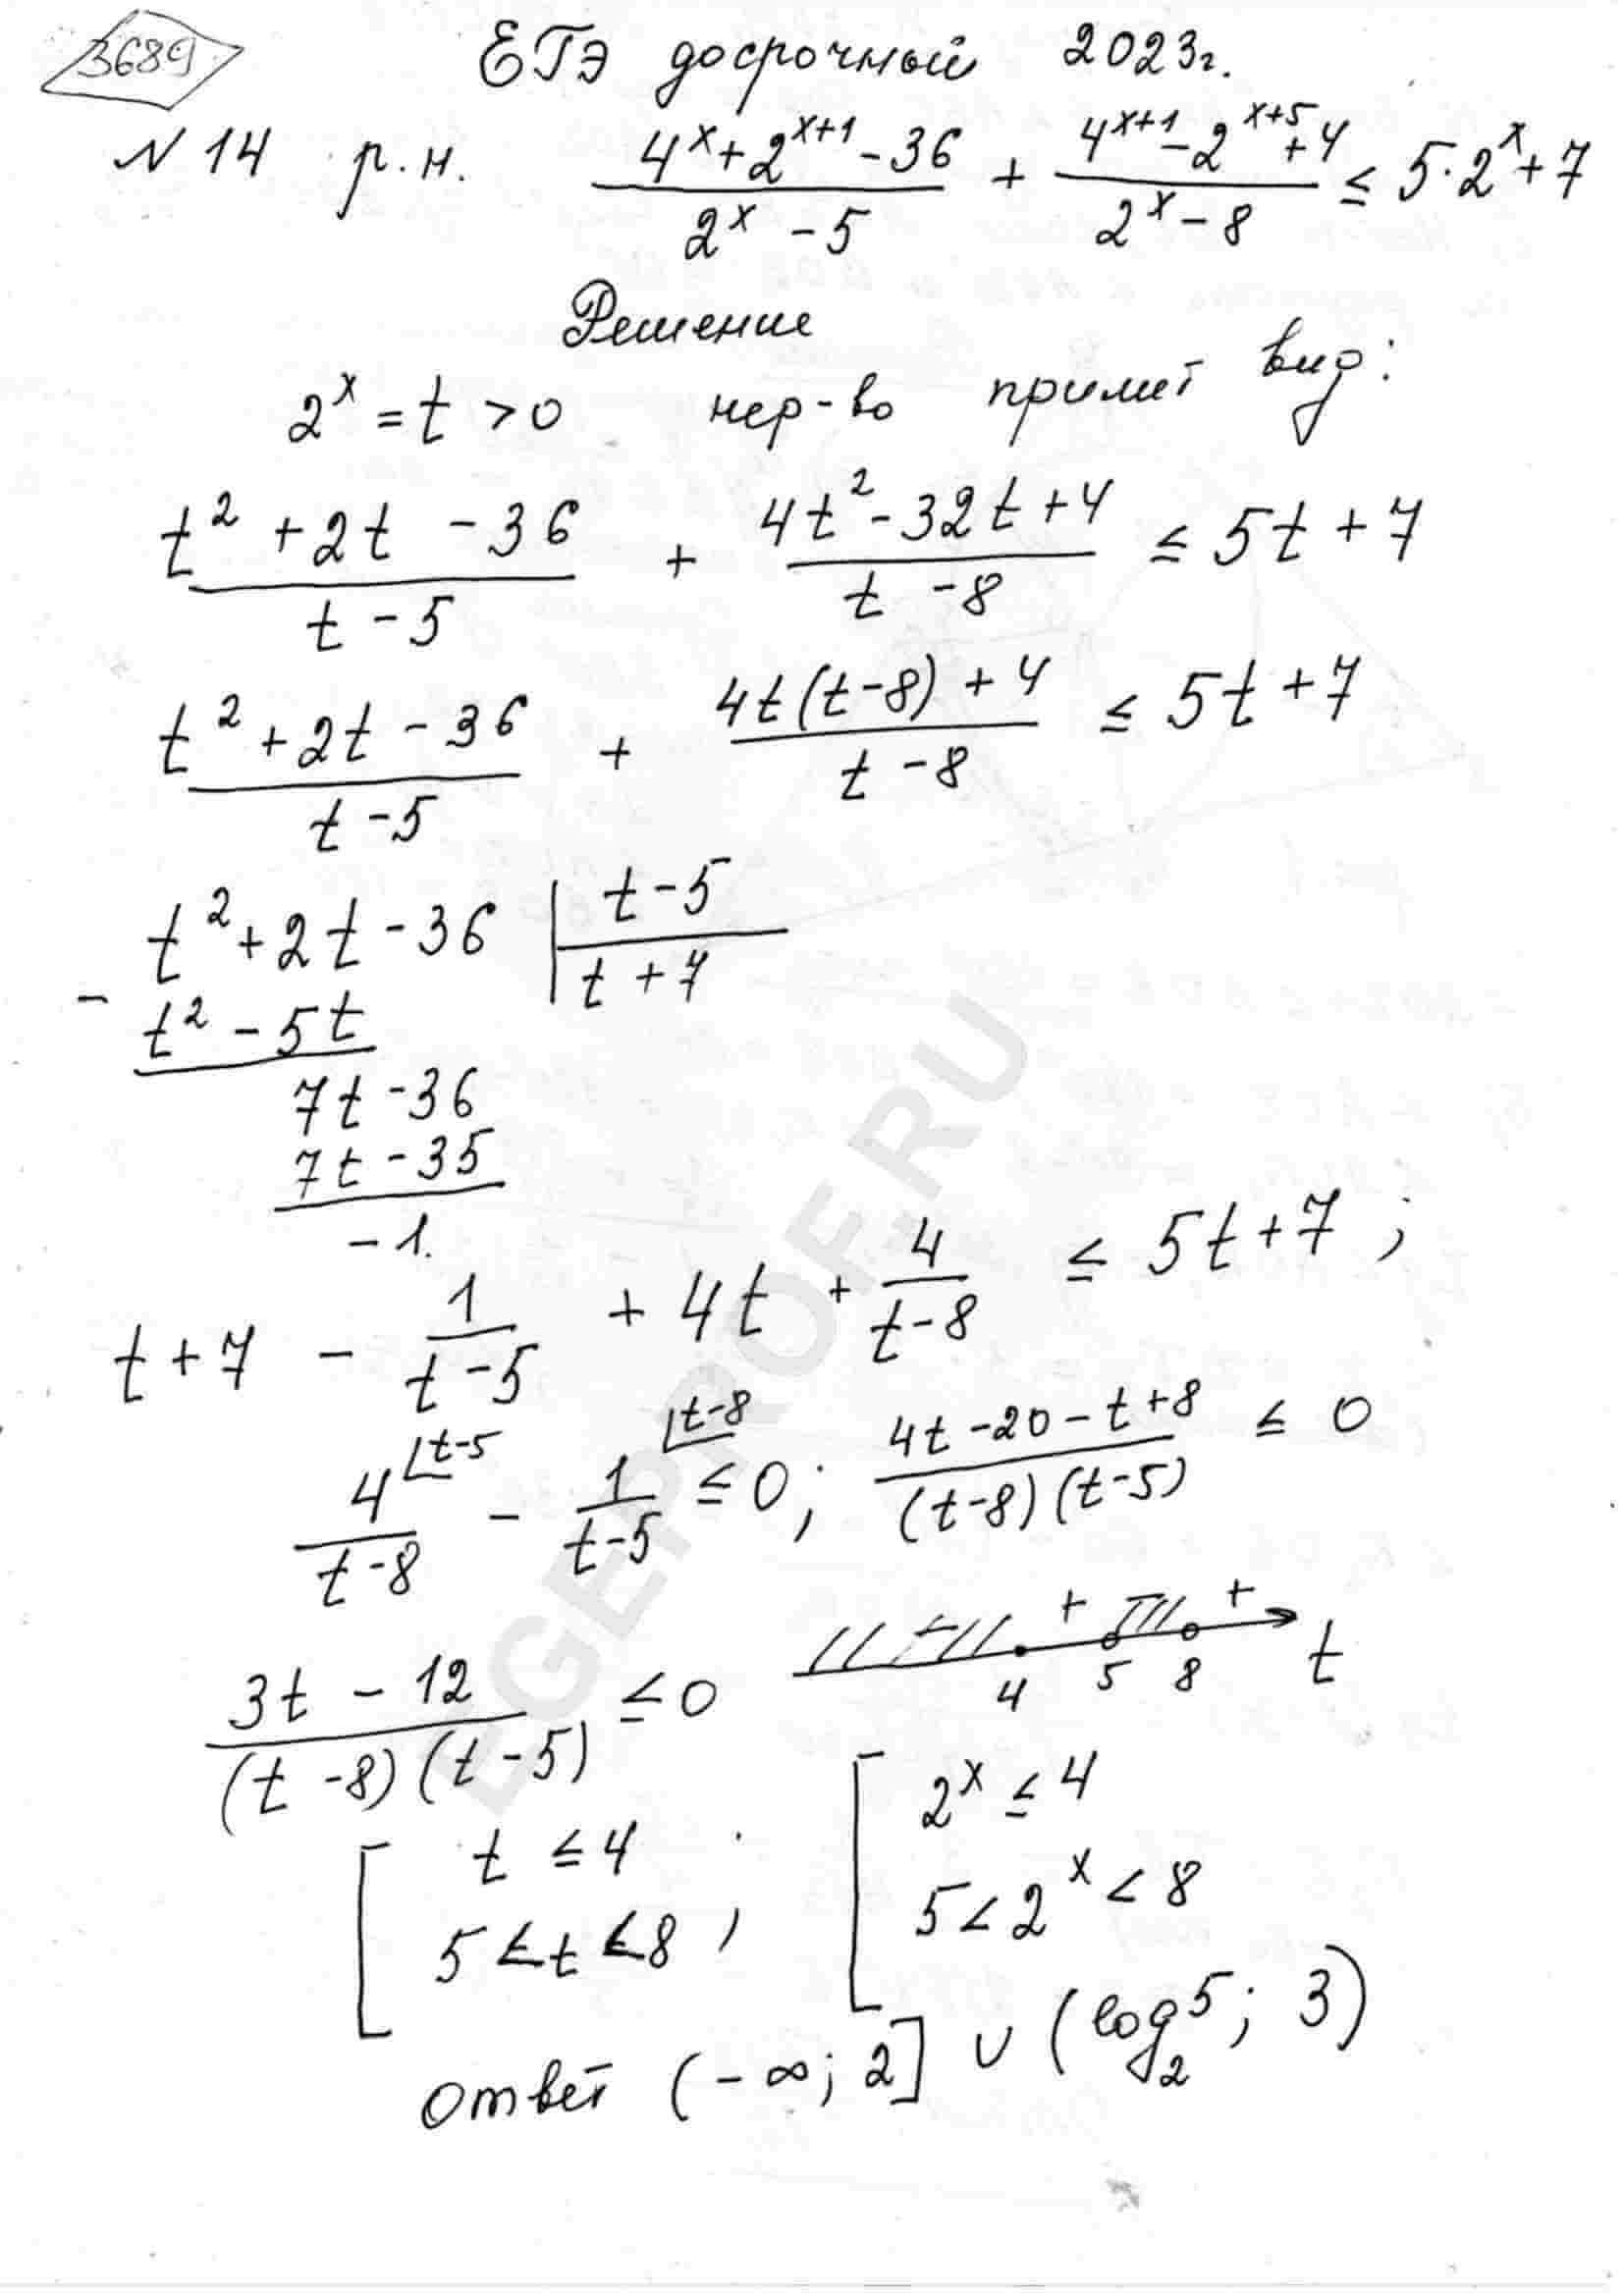 3689
ЕГЭ досрочный 2023г.
N 14 р.н. (4^x + 2^(x+1) - 36)/(2^x - 5) + (4^(x+1) - 2^(x+5) + 4)/(2^x - 8) ≤ 5·2^x + 7
Решение
2^x = t > 0 нер-во примет вид:
(t² + 2t - 36)/(t - 5) + (4t² - 32t + 4)/(t - 8) ≤ 5t + 7
(t² + 2t - 36)/(t - 5) + (4t(t - 8) + 4)/(t - 8) ≤ 5t + 7
- t² + 2t - 36 | t - 5
t² - 5t | t + 7
7t - 36
7t - 35
- 1.
t + 7 - 1/(t - 5) + 4t + 4/(t - 8) ≤ 5t + 7 ;
4^(t-5)/(t - 8) - 1^(t-8)/(t - 5) ≤ 0 ; (4t - 20 - t + 8)/((t - 8)(t - 5)) ≤ 0
(3t - 12)/((t - 8)(t - 5)) ≤ 0 - + + 4 5 8 t
[ t ≤ 4 [ 2^x ≤ 4
5 < t < 8 ; 5 < 2^x < 8
ответ (-∞; 2] ∪ (log₂5; 3)
EGEPROF.RU